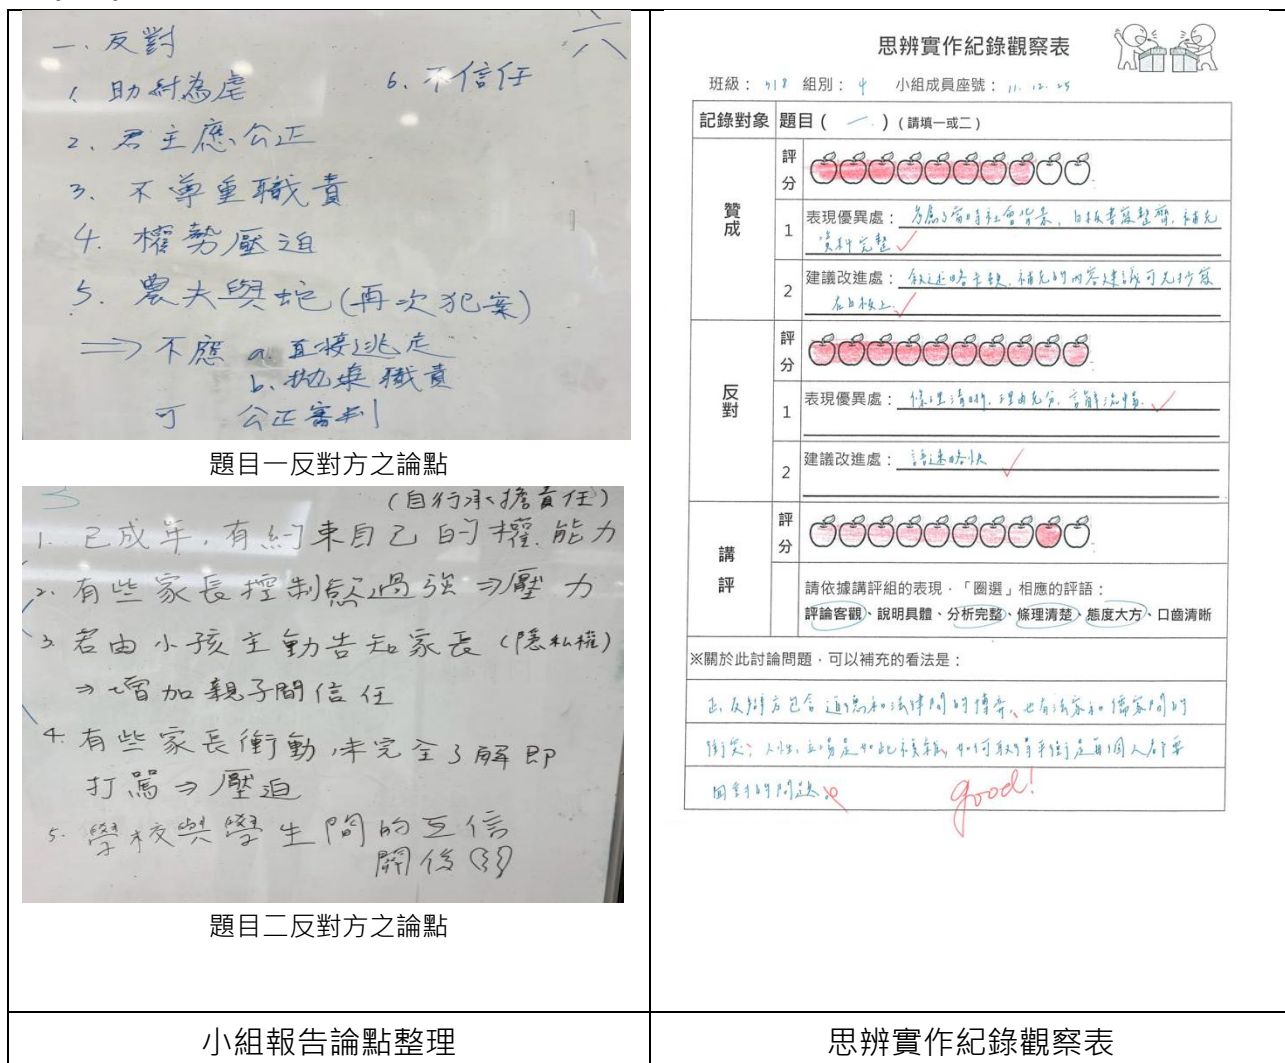 一、反對
六
1、助紂為虐
6、不信任
2、君主應公正
3、不尊重職責
4、權勢壓迫
5、農夫與蛇(再次犯案)
⇒不應 a.直接逃走
b.拋棄職責
可 公正審判
題目一反對方之論點
5
(自行承擔責任)
1. 已成年,有約束自己的權、能力
2. 有些家長控制慾過強⇒壓力
3. 若由小孩主動告知家長(隱私權)
⇒增加親子間信任
4. 有些家長衝動,未完全了解即
打罵⇒壓迫
5. 學校與學生間的互信
關係弱
題目二反對方之論點
小組報告論點整理
思辨實作紀錄觀察表
班級: 組別:4 小組成員座號:11. 12. 25
記錄對象 題目(一)(請填一或二)
贊成
評分
1 表現優異處:考慮了當時社會背景、白板書寫整齊,補充
資料完整
2 建議改進處:敘述略卡頓,補充的內容建議可先抄寫
在白板上
反對
評分
1 表現優異處:條理清晰,理由充分,言辭流暢
2 建議改進處:語速略快
講評
評分
請依據講評組的表現,「圈選」相應的評語:
評論客觀、說明具體、分析完整、條理清楚、態度大方、口齒清晰
※關於此討論問題,可以補充的看法是:
正、反辯方包含道德和法律間的博弈、也有法家和儒家間的
衝突;人性、立場是如此複雜,如何取得平衡是每個人都要
面對的問題。
good!
思辨實作紀錄觀察表